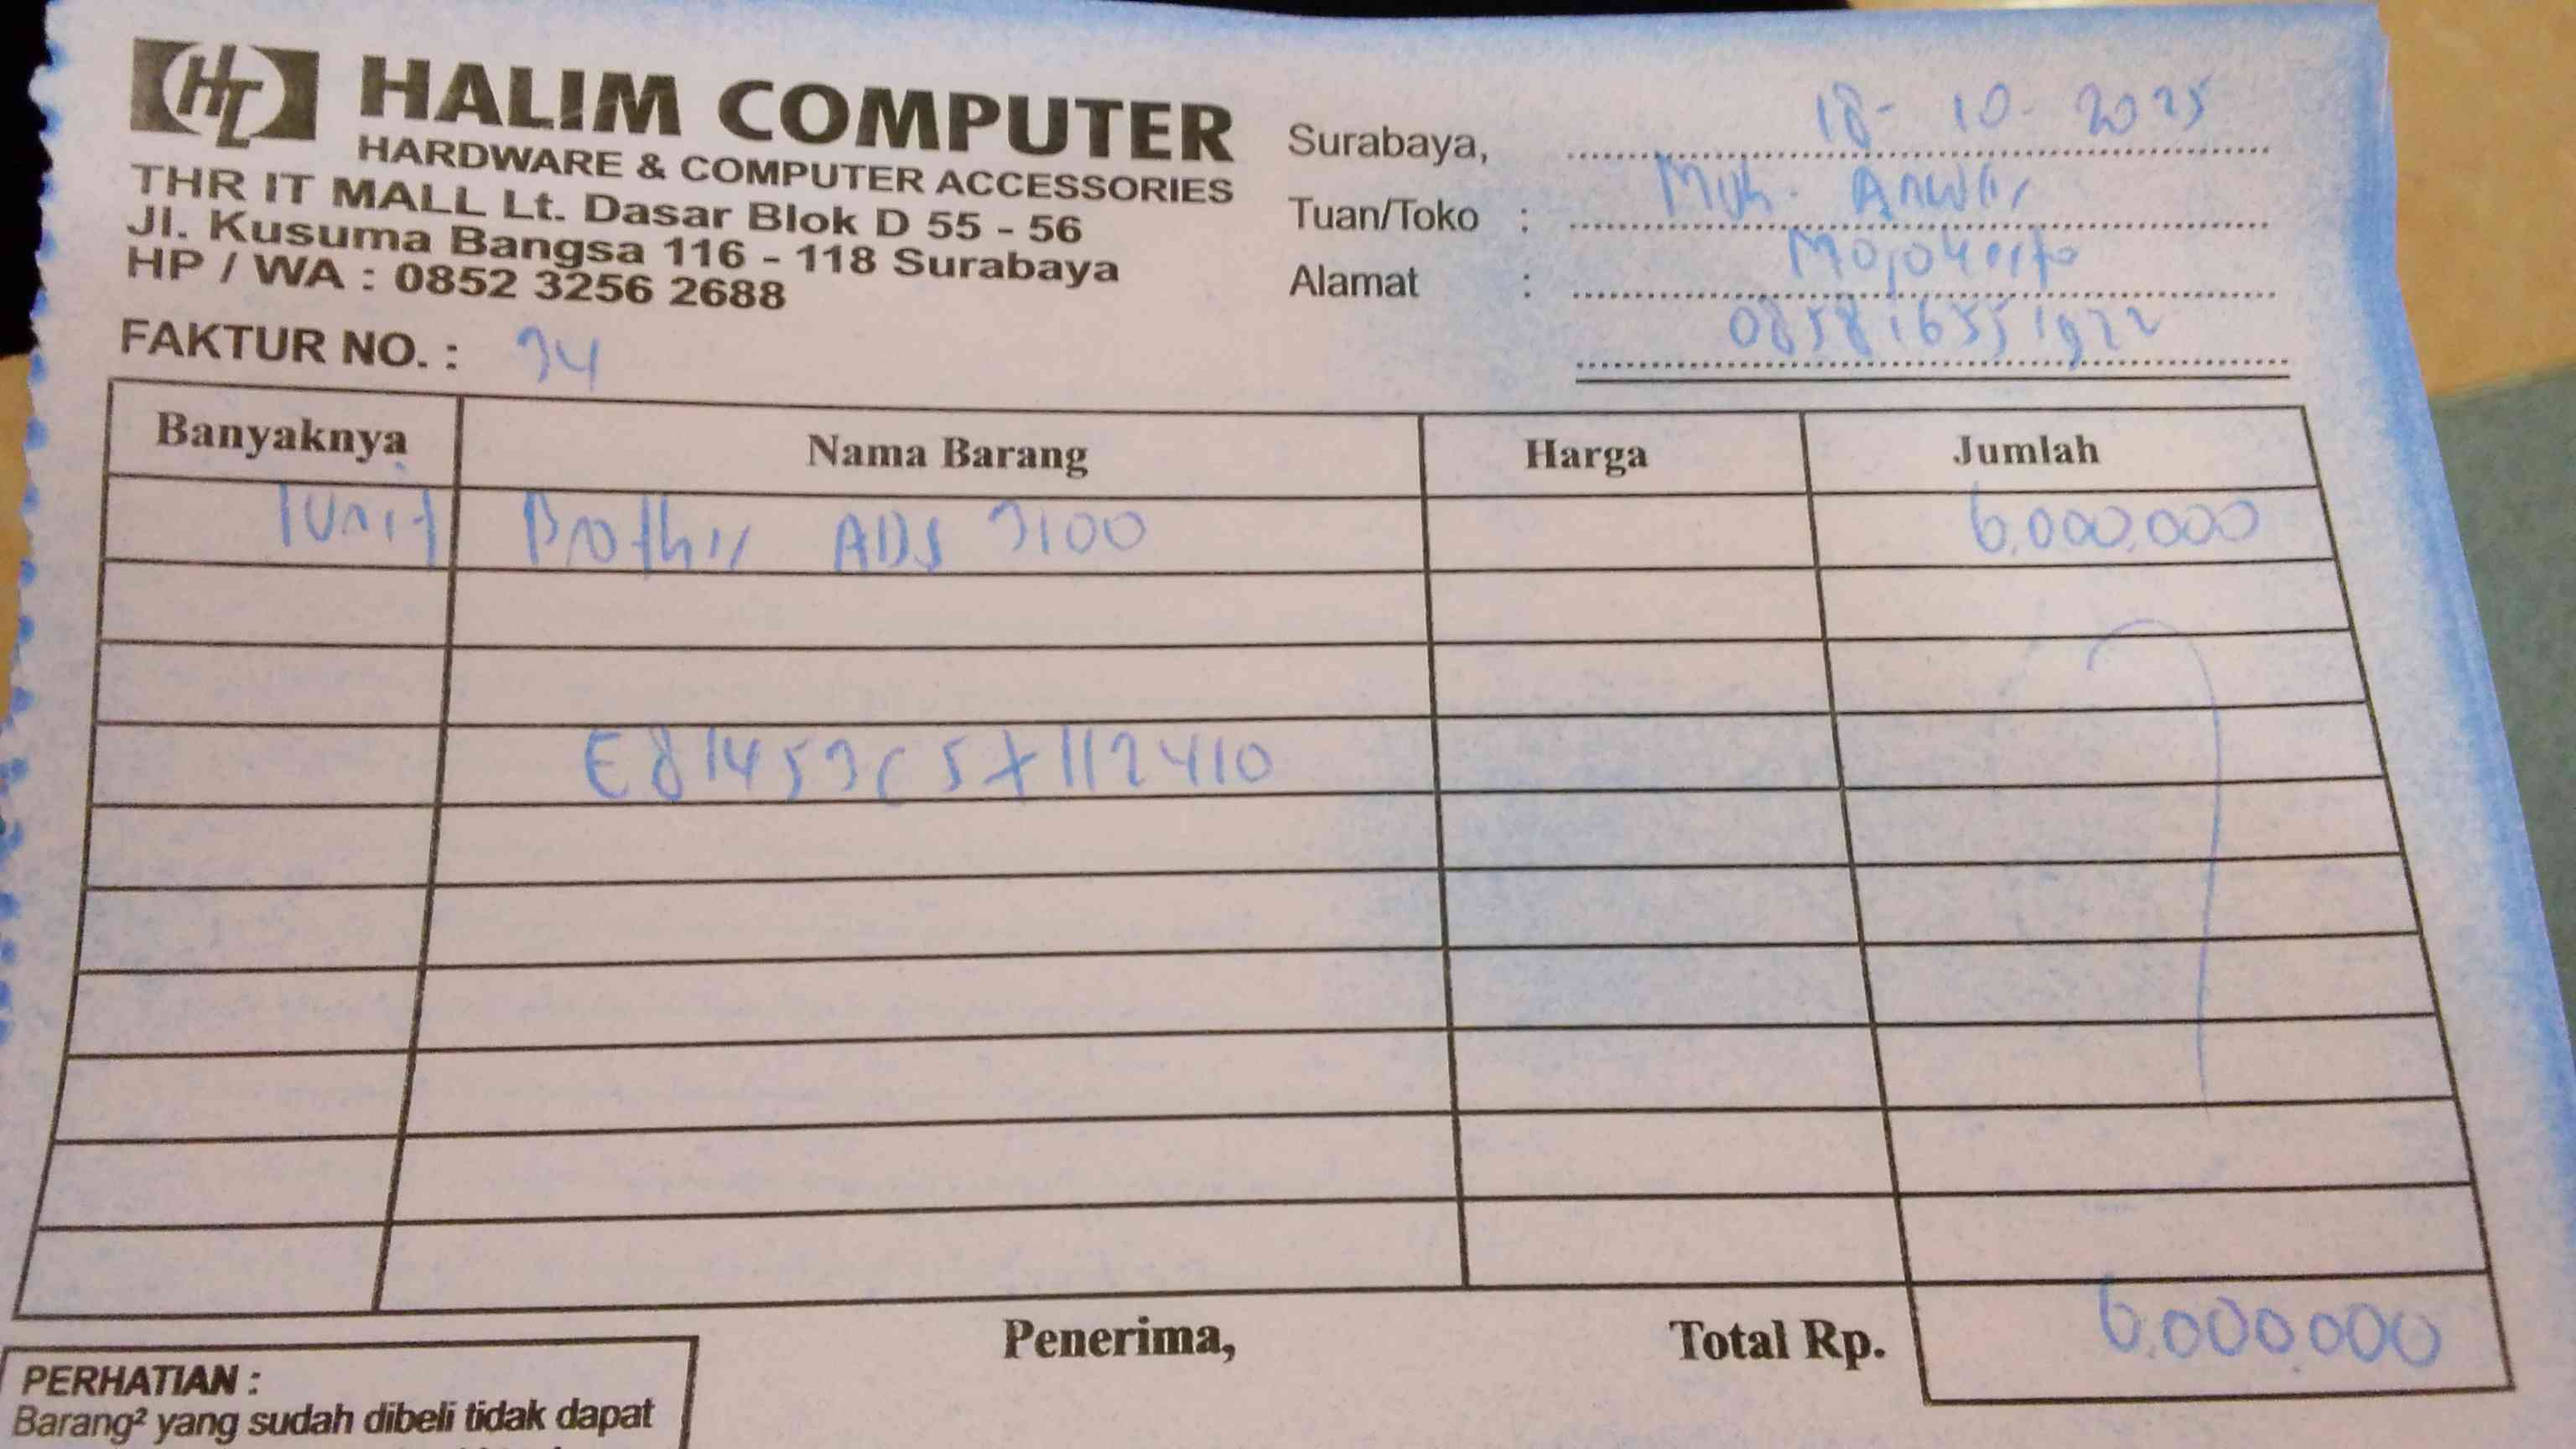 HL HALIM COMPUTER
HARDWARE & COMPUTER ACCESSORIES
THR IT MALL Lt. Dasar Blok D 55 - 56
Jl. Kusuma Bangsa 116 - 118 Surabaya
HP / WA : 0852 3256 2688
FAKTUR NO. : 34
Surabaya, 18-10-2025
Tuan/Toko : Muh. Anwar
Alamat : Mojokerto
085816551922
Banyaknya Nama Barang Harga Jumlah
1 unit Brother ADS 3100 6.000.000
E81453C5X112410
Penerima, Total Rp. 6.000.000
PERHATIAN :
Barang² yang sudah dibeli tidak dapat